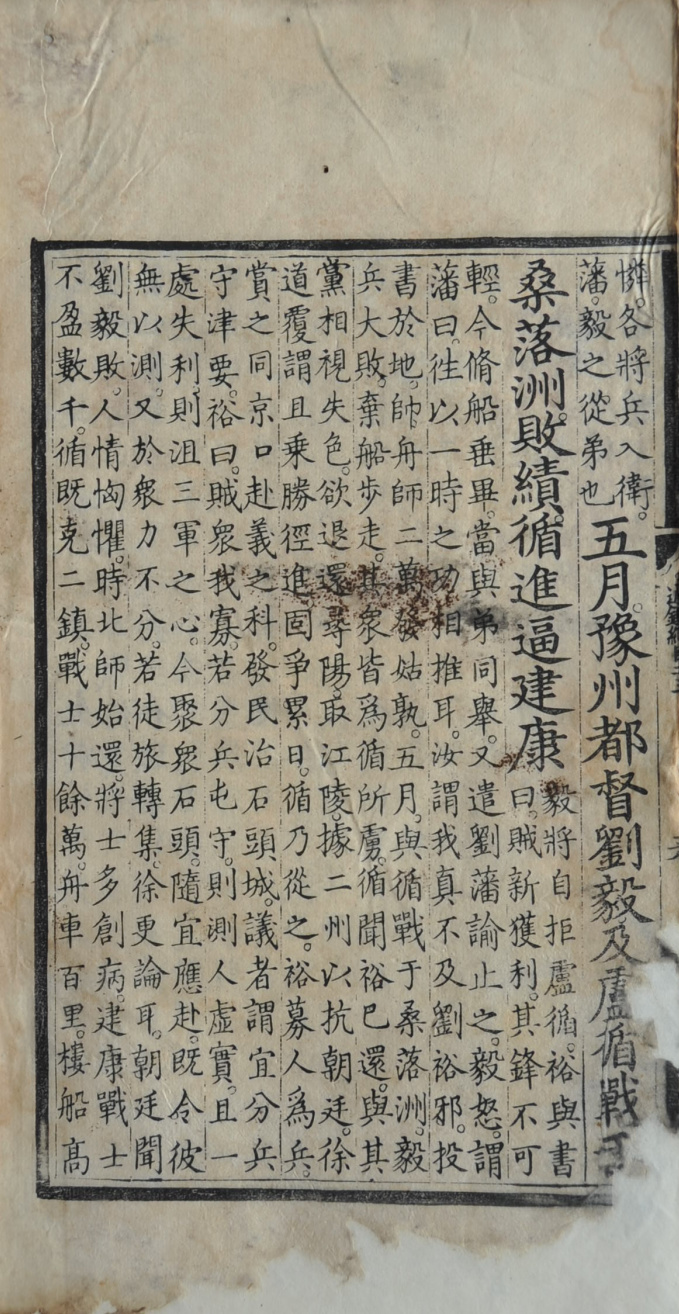 憐。各將兵入衛。
藩。毅之從弟也
五月。豫州都督劉毅及盧循戰
桑落洲。敗績。循進逼建康
毅將自拒盧循。裕與書
曰。賊新獲利。其鋒不可
輕。今脩船垂畢。當與弟同舉。又遣劉藩諭止之。毅怒。謂
藩曰。徃以一時之功相推耳。汝謂我真不及劉裕邪。投
書於地。帥舟師二萬發姑孰。五月。與循戰于桑落洲。毅
兵大敗。棄船步走。其衆皆爲循所虜。循聞裕已還。與其
黨相視失色。欲退還尋陽。取江陵。據二州以抗朝廷。徐
道覆謂且乘勝徑進。固爭累日。循乃從之。裕募人爲兵。
賞之同京口赴義之科。發民治石頭城。議者謂宜分兵
守津要。裕曰。賊衆我寡。若分兵屯守。則測人虛實。且一
處失利。則沮三軍之心。今聚衆石頭。隨宜應赴。既令彼
無以測。又於衆力不分。若徒旅轉集。徐更論耳。朝廷聞
劉毅敗。人情恟懼。時北師始還。將士多創病。建康戰士
不盈數千。循既克二鎮。戰士十餘萬。舟車百里。樓船高